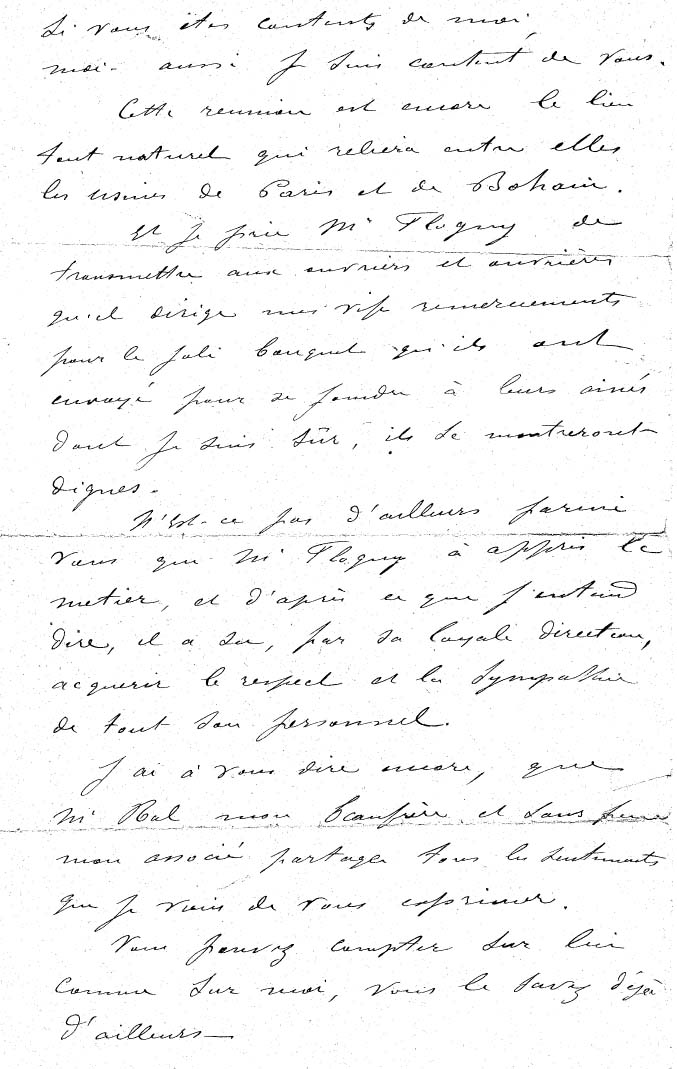 Si vous êtes contents de moi,
moi aussi je suis content de vous.
Cette reunion est encore le lien
tout naturel qui reliera entre elles
les usines de Paris et de Bohain.
Et je prie Mr Flogny de
transmettre aux ouvriers et ouvrières
qu'il dirige mes vifs remerciements
pour le joli bouquet qu'ils ont
envoyé pour se joindre à leurs ainés
dont je suis sûr, ils se montreront
dignes.
N'est-ce pas d'ailleurs parmi
vous que Mr Flogny à appris le
metier, et d'après ce que j'entend
dire, il a su, par sa loyale direction,
acquerir le respect et la sympathie
de tout son personnel.
J'ai à vous dire encore, que
Mr Ral mon beaufrère et sous peu
mon associé partage tous les sentiments
que je viens de vous exprimer.
Vous pouvez compter sur lui
comme sur moi, vous le savez déjà
d'ailleurs—